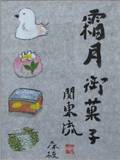 霜月御菓子
関東流